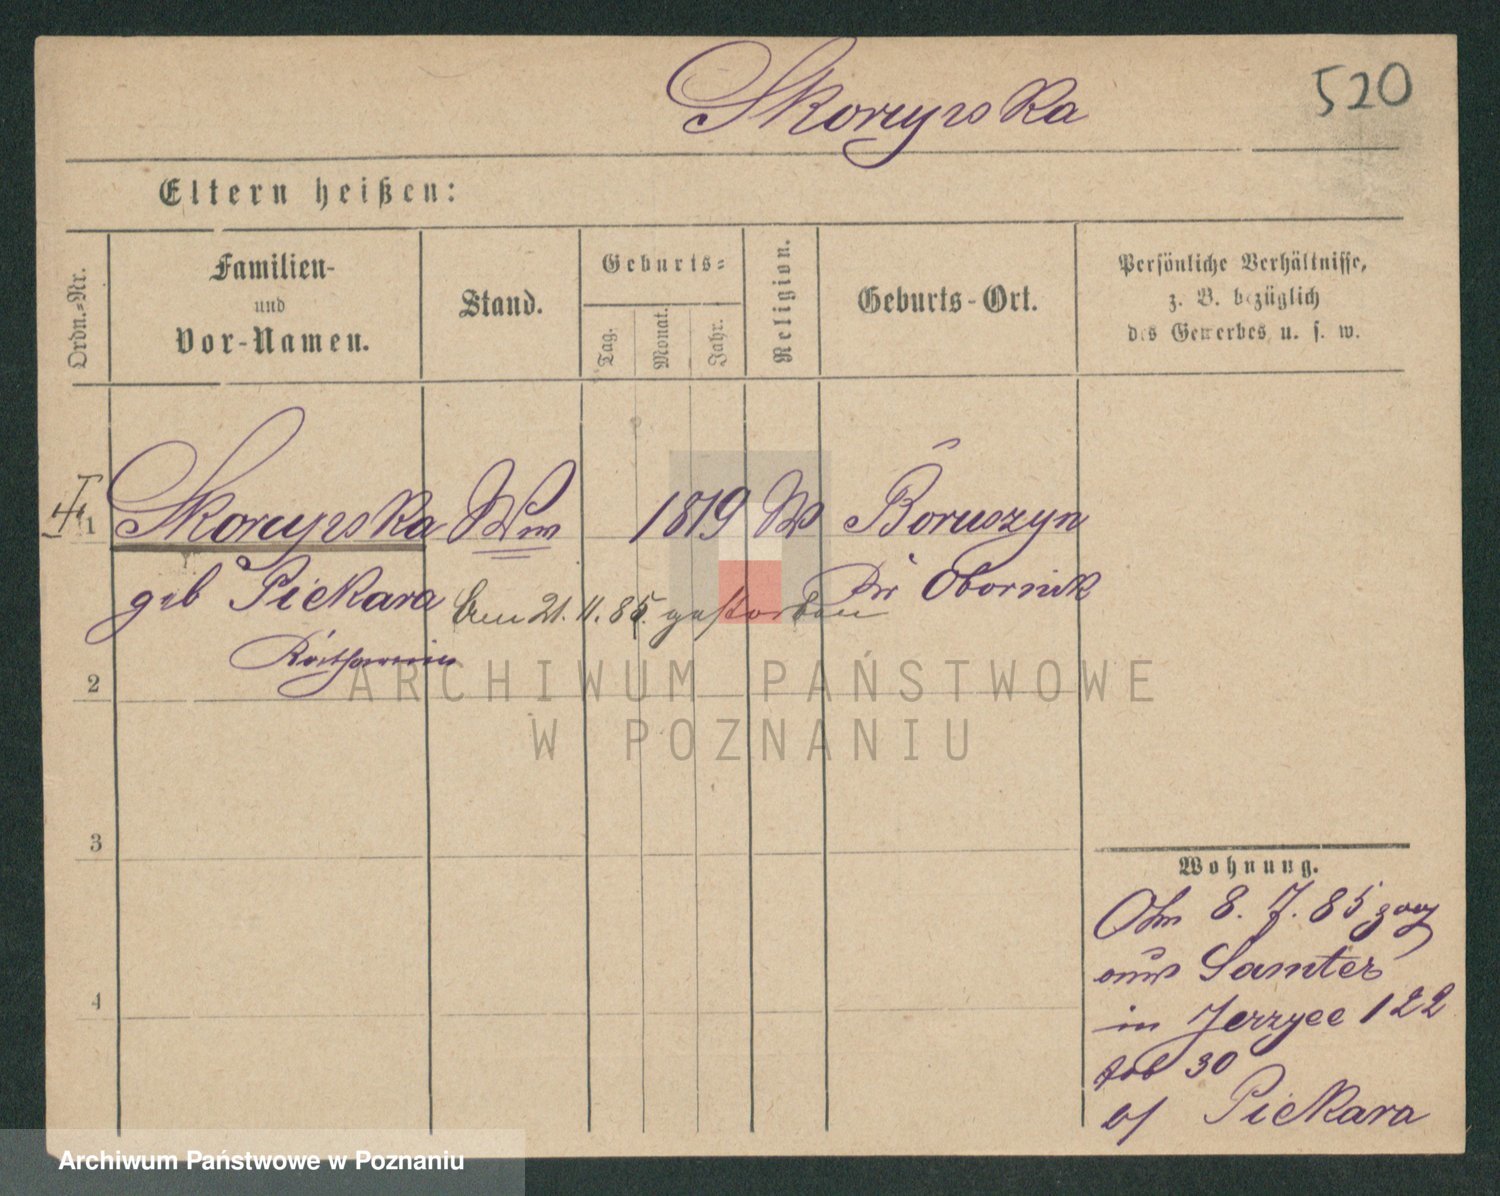 Skorupska
520
Eltern heißen:
Ordn.-Nr.
Familien-
und
Vor-Namen.
Stand.
Geburts-
Tag.
Monat.
Jahr.
Religion.
Geburts-Ort.
Persönliche Verhältnisse,
z. B. bezüglich
des Gewerbes u. s. w.
1
Skorupska Ww 1819 Boruszyn
geb Piekara Kr Obornik
am 21. 11. 85. gestorben
2
ARCHIWUM PAŃSTWOWE
W POZNANIU
3
Wohnung.
4
Am 8. 7. 85 zog
aus Samter
in Jerzyce 122
30
b/ Piekara
Archiwum Państwowe w Poznaniu